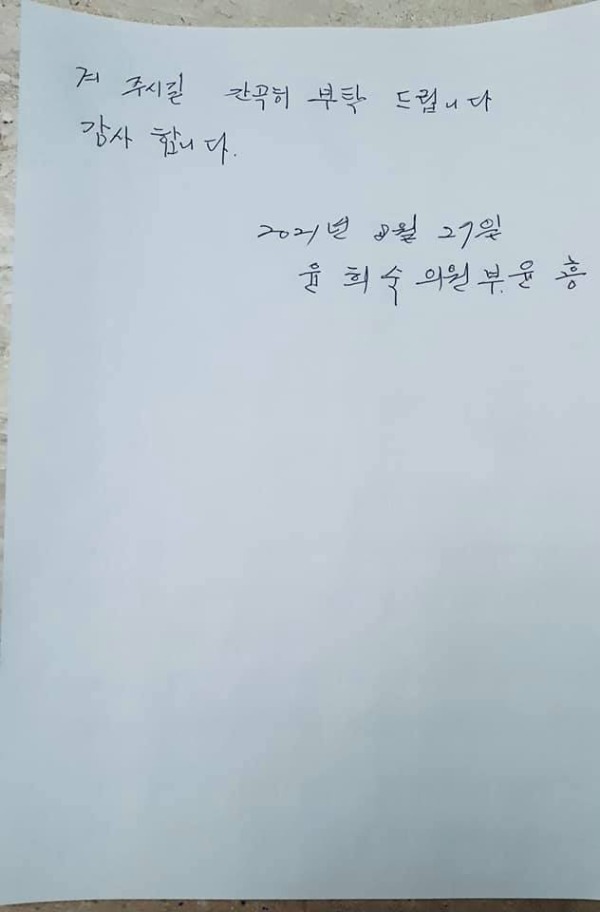 겨 주시길 간곡히 부탁 드립니다
감사 합니다.
2021년 8월 27일
윤 희 숙 의원 부. 윤 흥